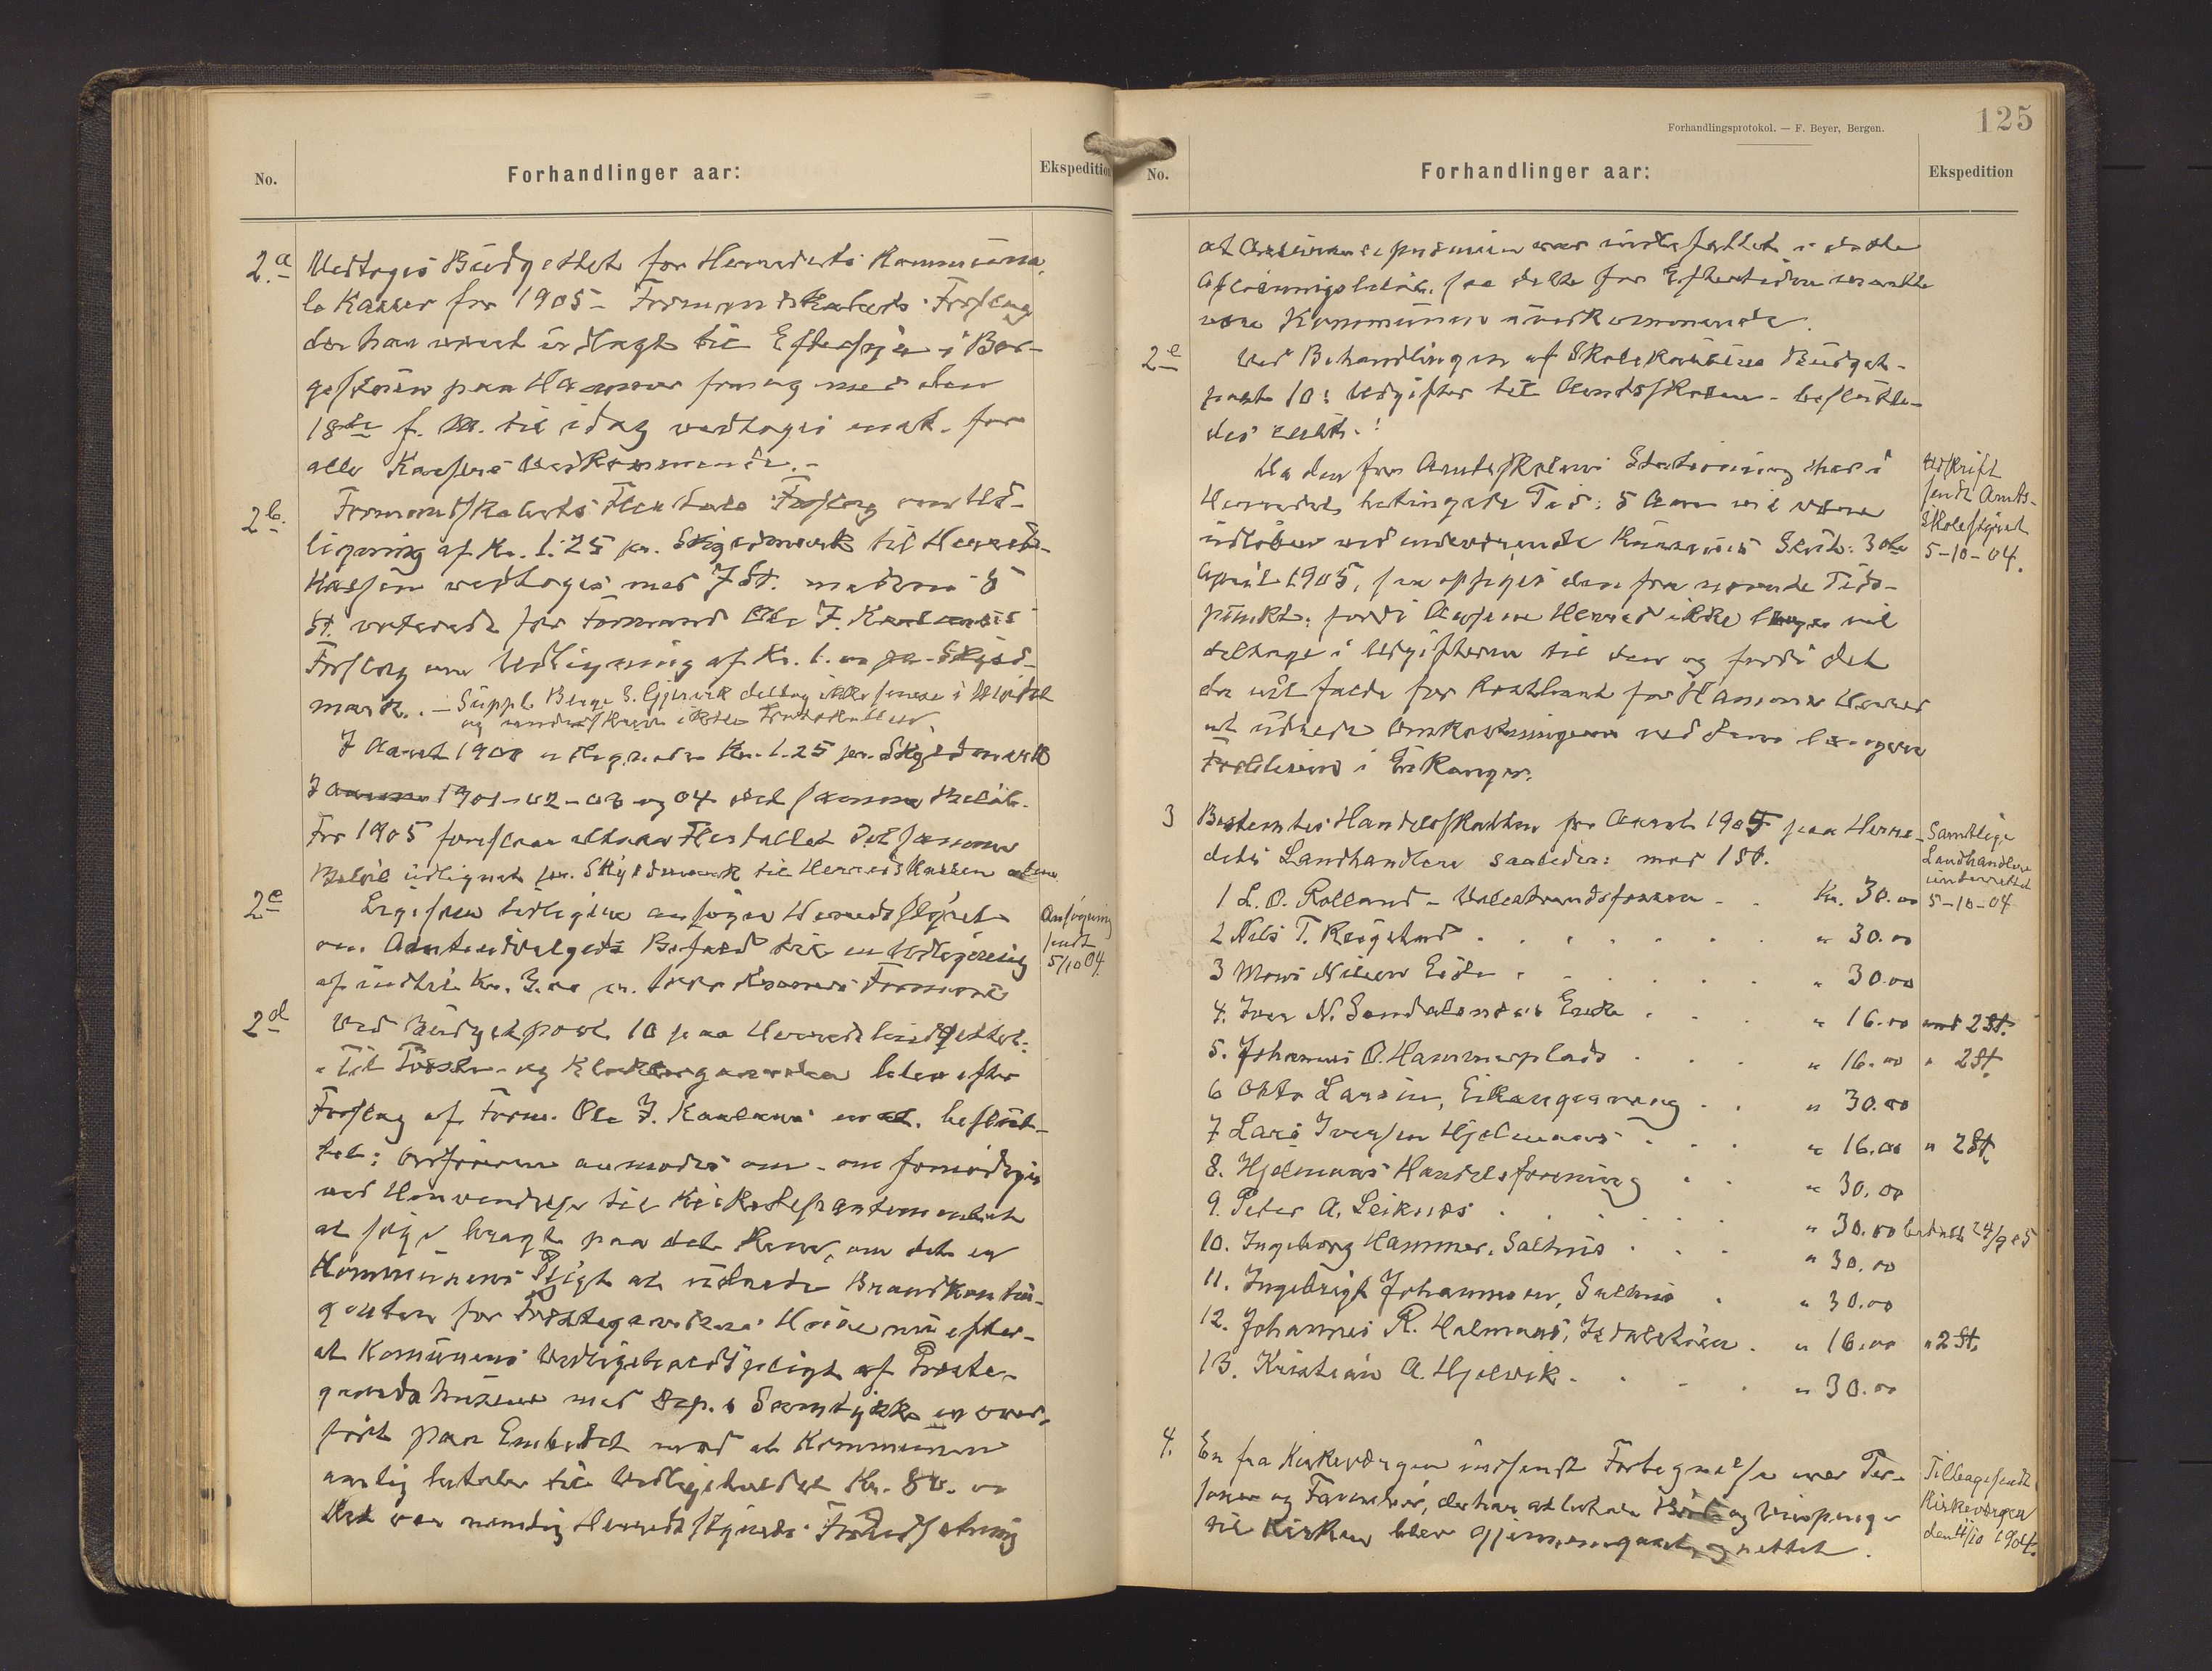 No.
Forhandlinger aar:
Ekspedition
2.a Vedtoges Budgettet for Herredets Kommuna-
le Kasser for 1905 - Formandskabets Forslag
der har været udlagt til Eftersyn i Ber-
gestuen paa Hammer fra og med den
18de f. M. til idag vedtoges enst. for
alle Kassers Vedkommende.-
2b. Formandskabets Flertals Forslag om Ud-
ligning af Kr. 1.25 pr. Skyldmark til Herreds-
kassen vedtoges med 7 St. medens 5
St. voterede for Formand Ole J. Kaalaas's
Forslag om Udligning af Kr. 1.00 pr. Skyld-
mark. - Suppl. Berge S. Gjervik deltog ikke i
og underskrev ikke
I Aaret 1900 udlignedes Kr. 1.25 pr. Skyldmark
I Aarene 1901-02-03 og 04 det samme Beløb.
For 1905 foreslaar altsaa Flertallet det samme
Beløb udlignet pr. Skyldmark til Herredskassen alene.
2c Ligesom tidligere ansøger Herredsstyret
om Amtsudvalgets Bifald til en Udligning
af indtil Kr. 3.00 pr. 1000 Kroners Formue
Ansøgning
sendt
5/10 04.
2d Ved Budgetpost 10 paa Herredsbudgettet:
"Til Præste- og Klokkergaarden blev efter
Forslag af Form. Ole J. Kaalaas enst. besluttet:
Ordføreren anmodes om - om fornødiges
ved Henvendelse til Kirkedepartementet
at søge bragt paa det Rene, om det er
Kommunens Pligt at udrede Brandkontin-
genten for Præstegaardens Huse nu efter-
at Komunens Vedligeholdspligt af Præste-
gaardshusene med Dep.s Samtykke er over-
ført paa Embedet mod at Kommunen
aarlig betaler til Vedligeholdet Kr. 80.00
Det var nemlig Herredsstyrets Forudsætning
Forhandlingsprotokol. — F. Beyer, Bergen.
125
No.
Forhandlinger aar:
Ekspedition
at Assurancepræmien var indbefattet i dette
Afløsningsbeløb, saa dette for Eftertiden maatte
være Kommunen uvedkommende.
2e Ved Behandlingen af Skolekassens Budget-
post 10: Udgifter til Amtsskolen - beslutte-
des enst.:
Da den for Amtsskolens Stationering her i
Herredet betingede Tid: 5 Aar vil være
udløben ved indeværende Kursus's Slut: 30te
April 1905, saa opsiges den fra nævnte Tids-
punkt, fordi Herred ikke længer vil
deltage i Udgifterne til den og fordi det
da vil falde for kostbart for Hammer Herred
at udrede Omkostningerne ved dens længere
Forbliven i Eikanger.
Udskrift
sendt Amts-
skolestyret
5-10-04.
3 Bestemtes Handelsskatten for Aaret 1905 paa Herre-
dets Landhandlere saaledes: mod 1 St.
Samtlige
Landhandlere
underrettet
5-10-04
1 L. O. Rolland - Valestrandsfossen - . Kr. 30.00
2 Nils T. Reigstad . . . . . . " 30.00
3 Mons Nilsen Eide . . . . . " 30.00
4. Iver N. Sandalens's Enke . . . " 16.00 mod 2 St.
5. Johannes O. Hammerplads . . . " 16.00 " 2 St.
6 Otto Larsen, Eikangervaag . . " 30.00
7 Lars Iversen Hjelmaas . . . " 16.00 " 2 St.
8. Hjelmaas Handelsforening . . " 30.00
9. Peter A. Leiknes . . . . . " 30.00 betalt 24/9 05
10. Ingeborg Hammer, Salhus . . . " 30.00
11. Ingebrigt Johannesen, Salhus . " 30.00
12. Johannes R. Helmaas, Isdalstøen . " 16.00 " 2 St.
13. Kristian A. Hjelvik . . - . " 30.00
4. En fra Kirkevergen indsendt Fortegnelse over Per-
soner og Familier, der har at betale Bød og Vinpenge
til Kirken blev gjennemgaaet og rettet.
Tilbagesendt
Kirkevergen
den 4/10 1904.